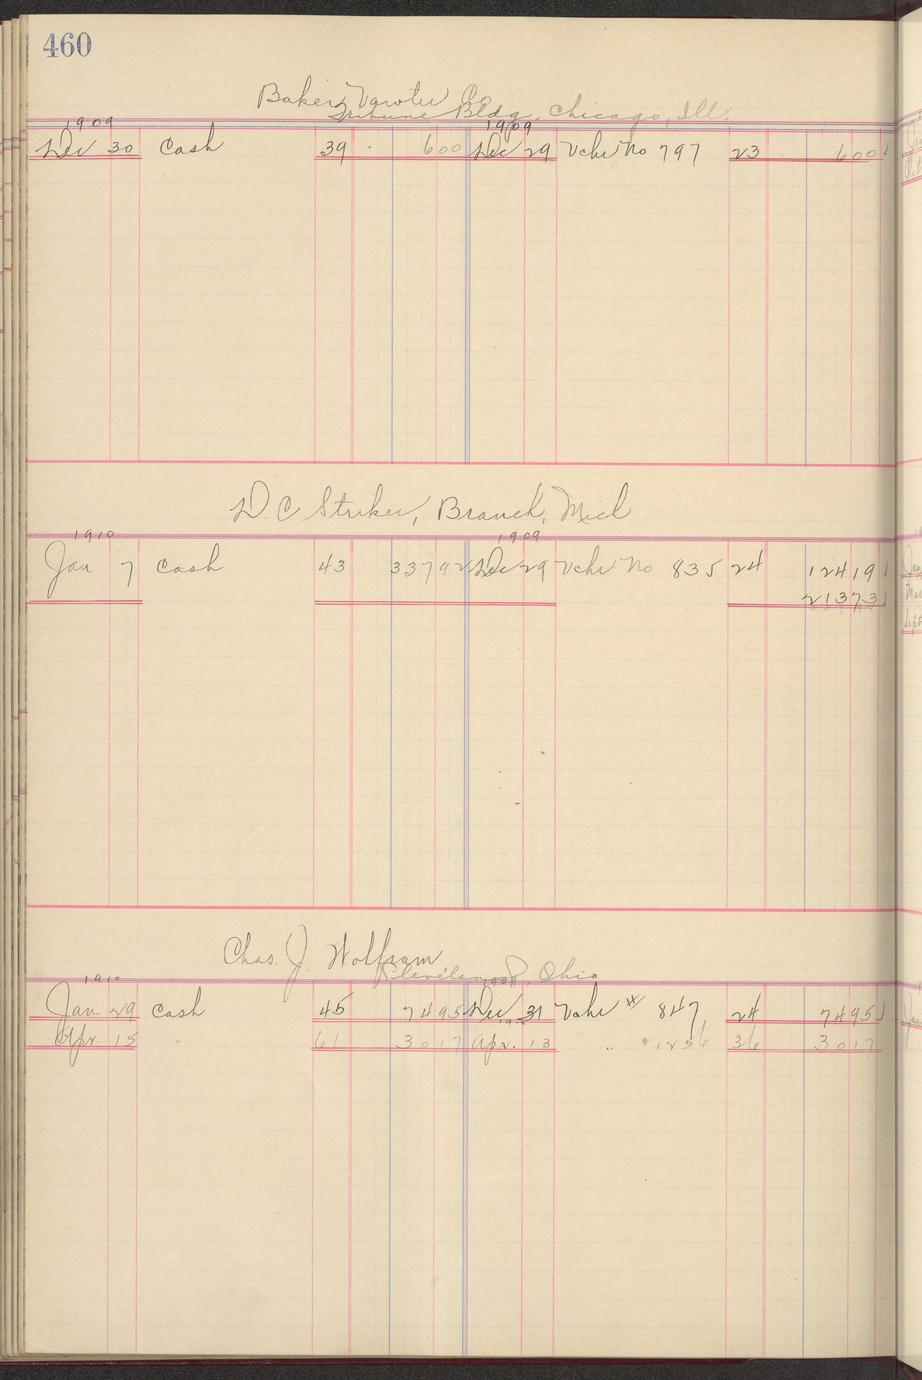 460
Baker Vawter Co
Tribune Bldg. Chicago, Ill.
1909 1909
Dec 30 Cash 39 600 Dec 29 Vchr No 797 23 600
D. C. Striker, Branch, Mich
1910 1909
Jan 7 Cash 43 33792 Dec 29 Vchr No 835 24 12419
21373
Chas. J. Wolfram
Cleveland, Ohio
1910 1909
Jan 29 Cash 45 7495 Dec 31 Vchr # 847 24 7495
1910
Apr. 15 " 61 3017 Apr. 13 " # 1256 36 3017